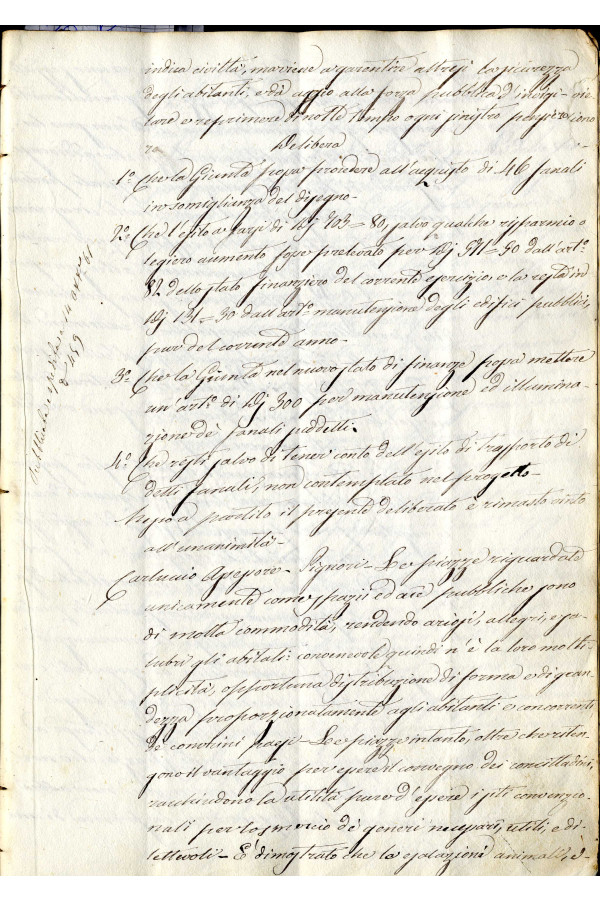 indica civiltà, ma viene a garentire altresì la sicurezza
degli abitanti, e dà aggio alla forza pubblica d'invigi-
lare e reprimere di notte tempo ogni sinistro pensiero
Delibera
1.° Che la Giunta possa procedere all'acquisto di 46 fanali
in somiglianza del disegno.
2.° Che l'esito a farsi di D.i 703=80, salvo qualche risparmio o
legiero aumento, fosse prelevato per D.i 571=50 dall'art.°
82 dello stato finanziero del corrente esercizio, e la resta in
D.i 131=30 dall'art.° manutenzione degli edifici pubblici,
pur del corrente anno.
3.° Che la Giunta nel nuovo stato di finanze possa mettere
un'art.° di D.i 300 per manutenzione ed illumina-
zione de' fanali suddetti.
4.° Che resti salvo di tener conto dell'esito di trasporto di
detti fanali, non contemplato nel progetto.
Messo a partito il presente deliberato è rimasto vinto
all'unanimità.
Carluccio Assessore. Signori. Le piazze risguardate
unicamente come spazii ed aree pubbliche sono
di molta commodità, rendendo ariosi, allegri, e sa-
lubri gli abitati: convenevole quindi n'è la loro molti-
plicità, opportuna distribuzione di forma e di gran-
dezza proporzionatamente agli abitanti e concorrenti
de' convicini paesi. Le piazze intanto, oltre che riten-
gono il vantaggio per essere il convegno dei concittadini,
racchiudono la utilità pure d'essere i siti convenzio-
nali per lo smercio de' generi necessari, utili, e di-
lettevoli. È dimostrato che le esalazioni animali, e-